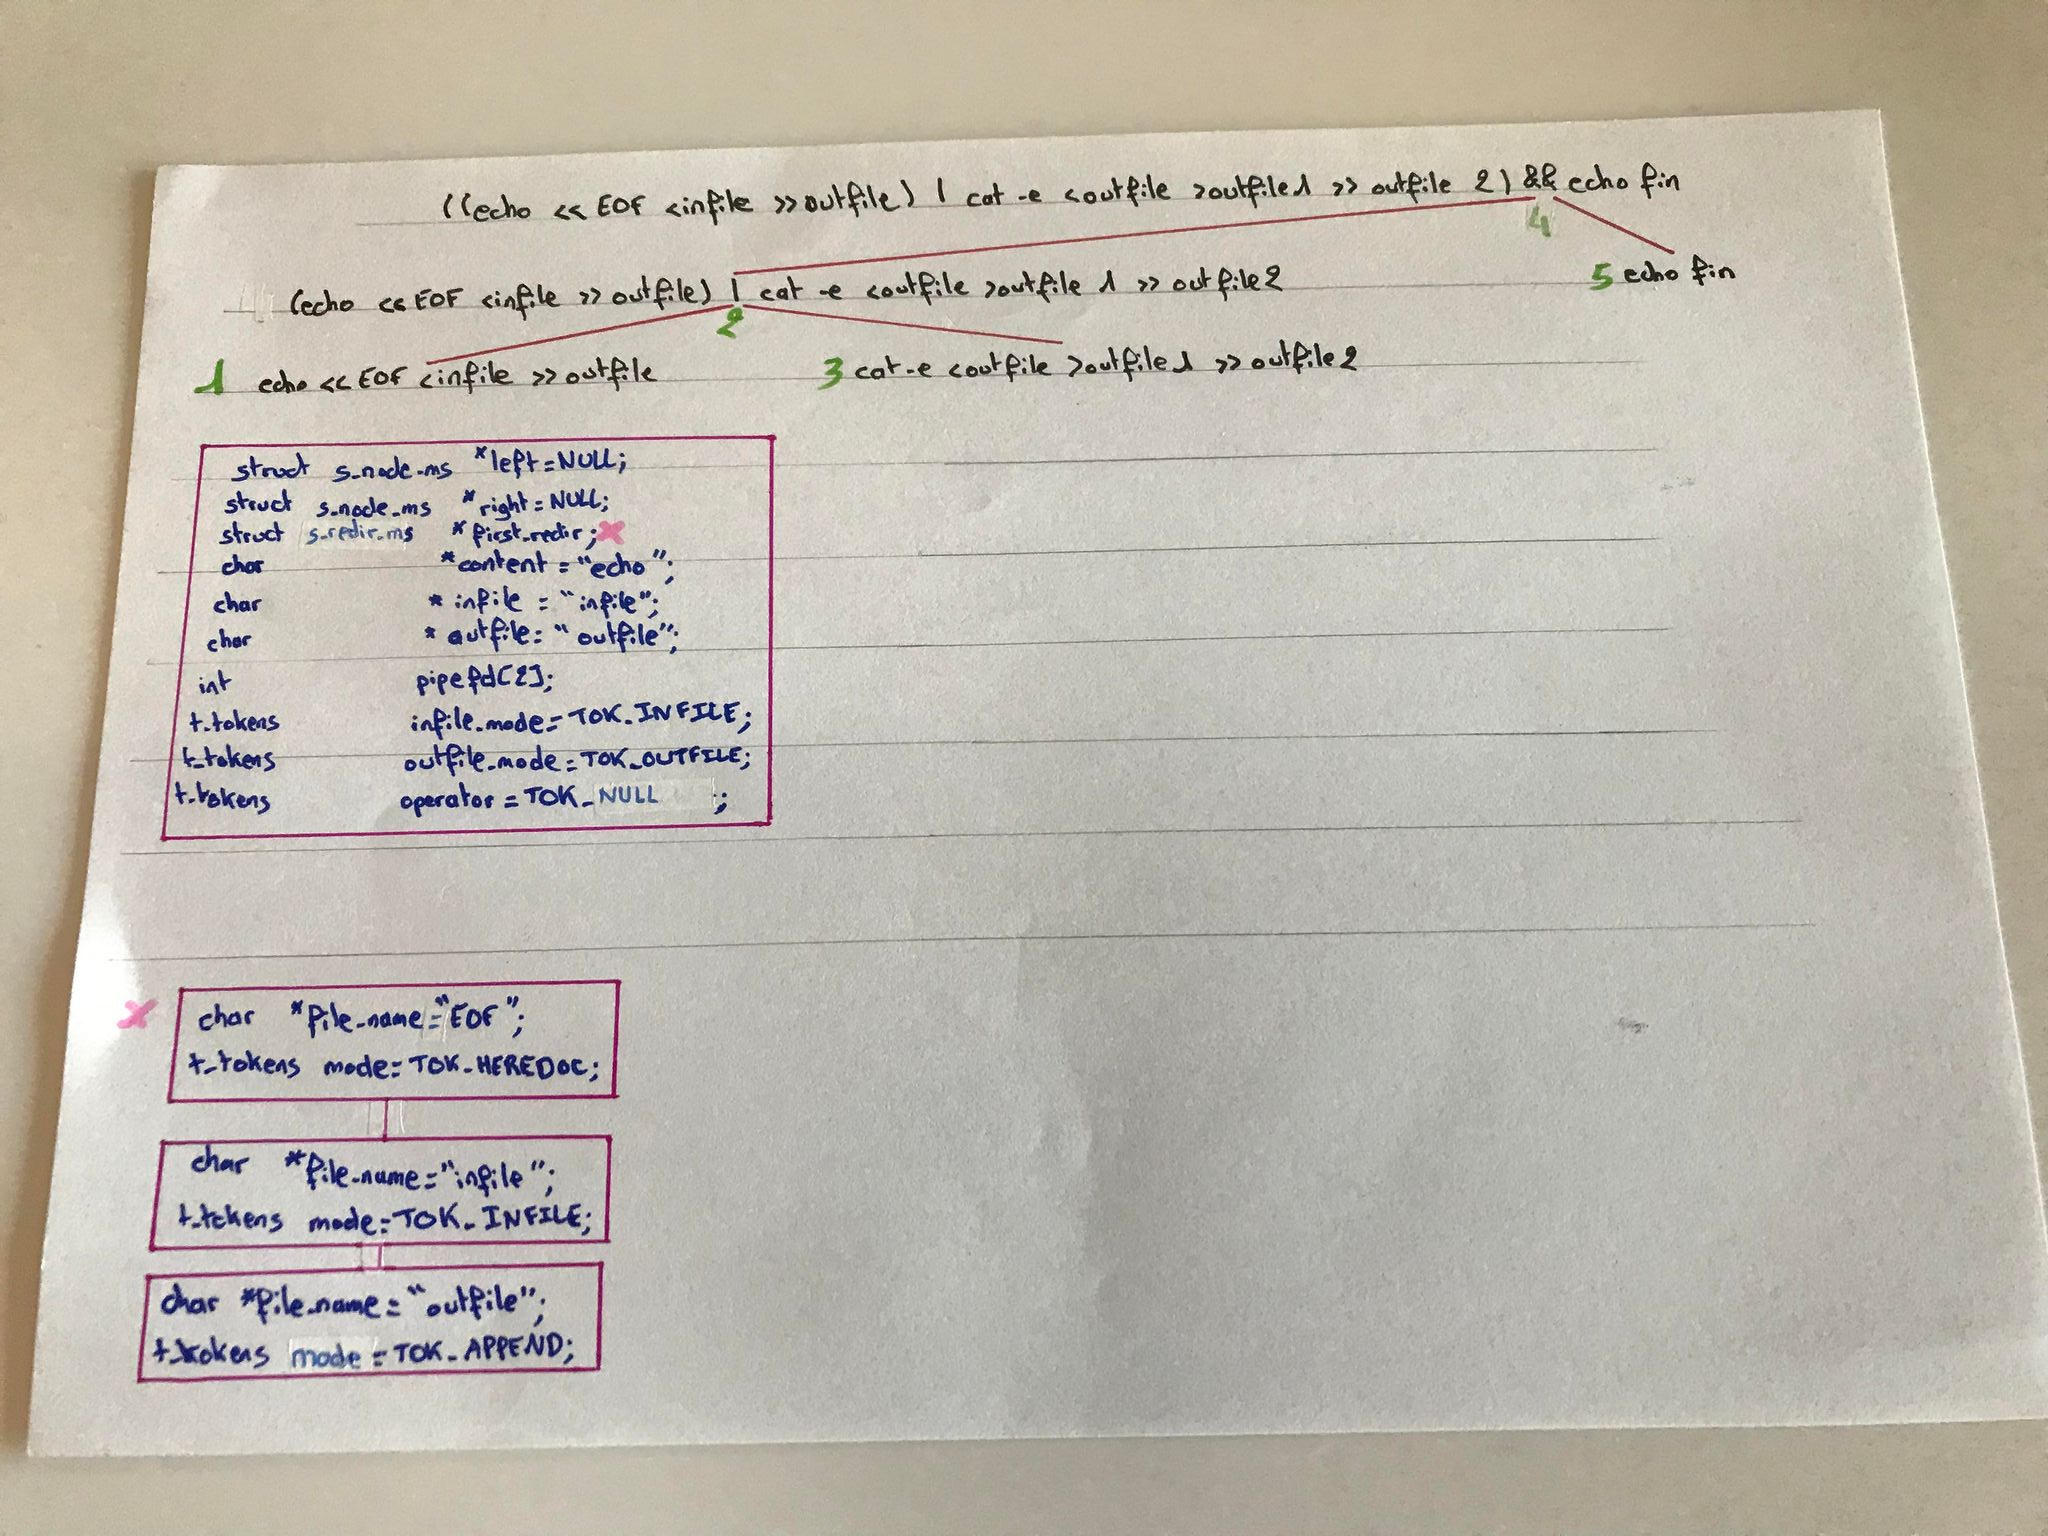 ((echo << EOF <infile >>outfile) | cat -e <outfile >outfile1 >> outfile 2) && echo fin
4
(echo << EOF <infile >> outfile) | cat -e <outfile >outfile 1 >> outfile2
5 echo fin
2
1 echo << EOF <infile >> outfile
3 cat -e <outfile >outfile1 >> outfile2
struct s_node_ms *left=NULL;
struct s_node_ms *right=NULL;
struct s_redir_ms *first_redir; x
char *content="echo";
char *infile = "infile";
char *outfile="outfile";
int pipefd[2];
t_tokens infile_mode=TOK_INFILE;
t_tokens outfile_mode=TOK_OUTFILE;
t_tokens operator=TOK_NULL ;
x char *file_name="EOF";
t_tokens mode=TOK_HEREDOC;
char *file_name="infile";
t_tokens mode=TOK_INFILE;
char *file_name="outfile";
t_tokens mode=TOK_APPEND;